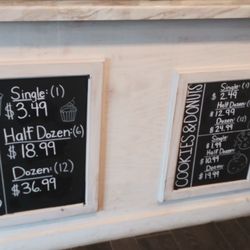 Single:(1)
$3.49
Half Dozen:(6)
$18.99
Dozen:(12)
$36.99
COOKIES & DONUTS
Single:(1)
$2.49
Half Dozen
$12.99
Dozen:(12)
$24.99
Single
$1.99
Half Dozen:
$10.99
Dozen:
$19.99